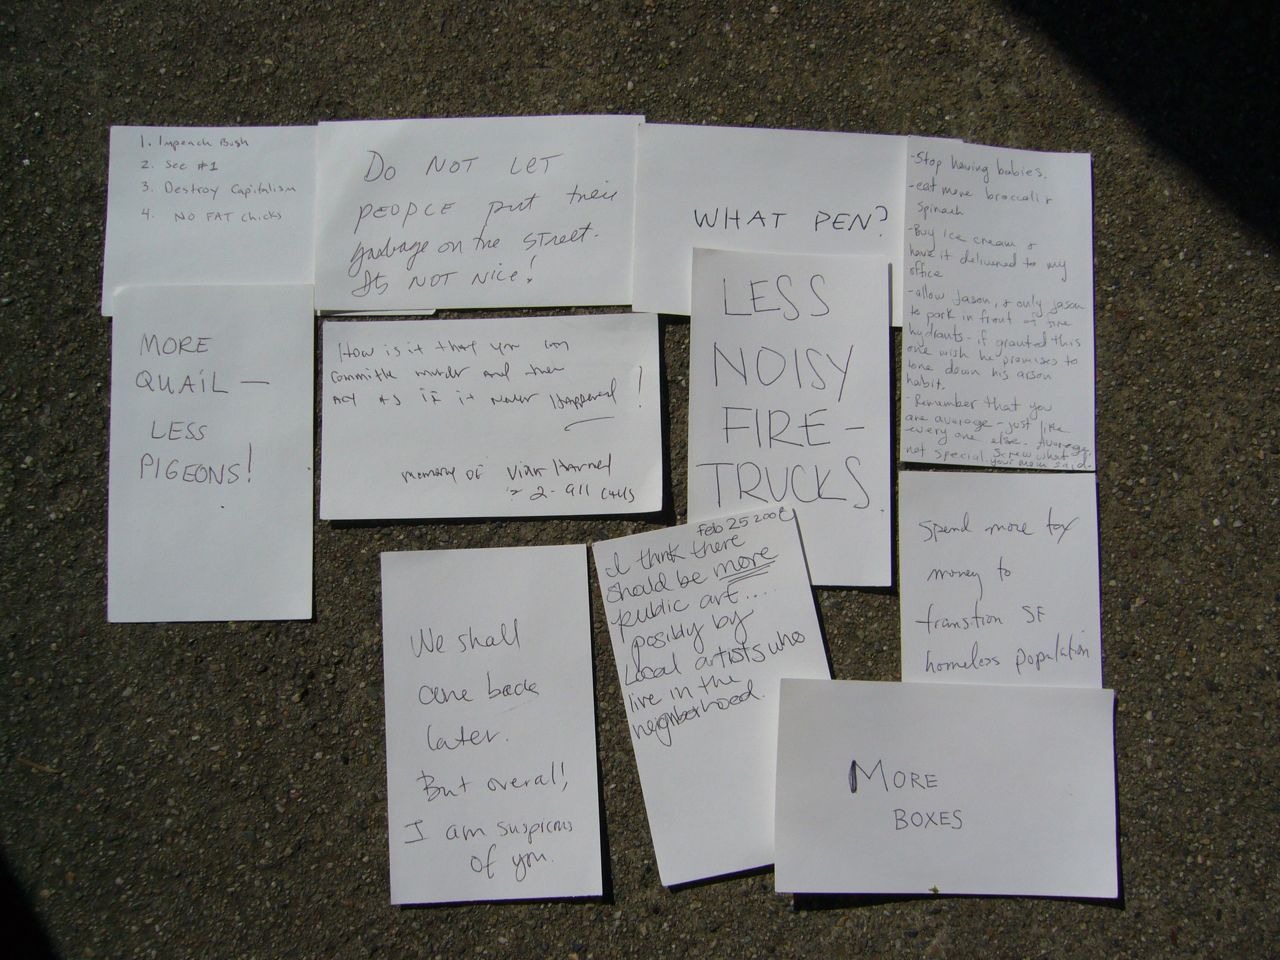 1. Impeach Bush
2. See #1
3. Destroy Capitalism
4. NO FAT chicks
DO NOT LET
PEOPLE put their
garbage on the STREET.
Its NOT NICE!
WHAT PEN?
-Stop having babies.
-eat more broccoli &
spinach
-Buy ice cream &
have it delivered to my
office
-allow Jason, & only Jason
to park in front of fire
hydrants- if granted this
one wish he promises to
tone down his arson
habit.
-Remember that you
are average - just like
every one else. Average,
not special. Screw what
your mom said.
MORE
QUAIL —
LESS
PIGEONS!
How is it that you can
committe murder and then
act as if it never Happened!
memory of
2-911 calls
LESS
NOISY
FIRE-
TRUCKS.
Spend more tax
money to
transtion SF
homeless population
We shall
come back
later.
But overall,
I am suspicious
of you.
Feb 25 2008
I think there
should be more
public art....
posibly by
Local artists who
live in the
neighborhood.
MORE
BOXES